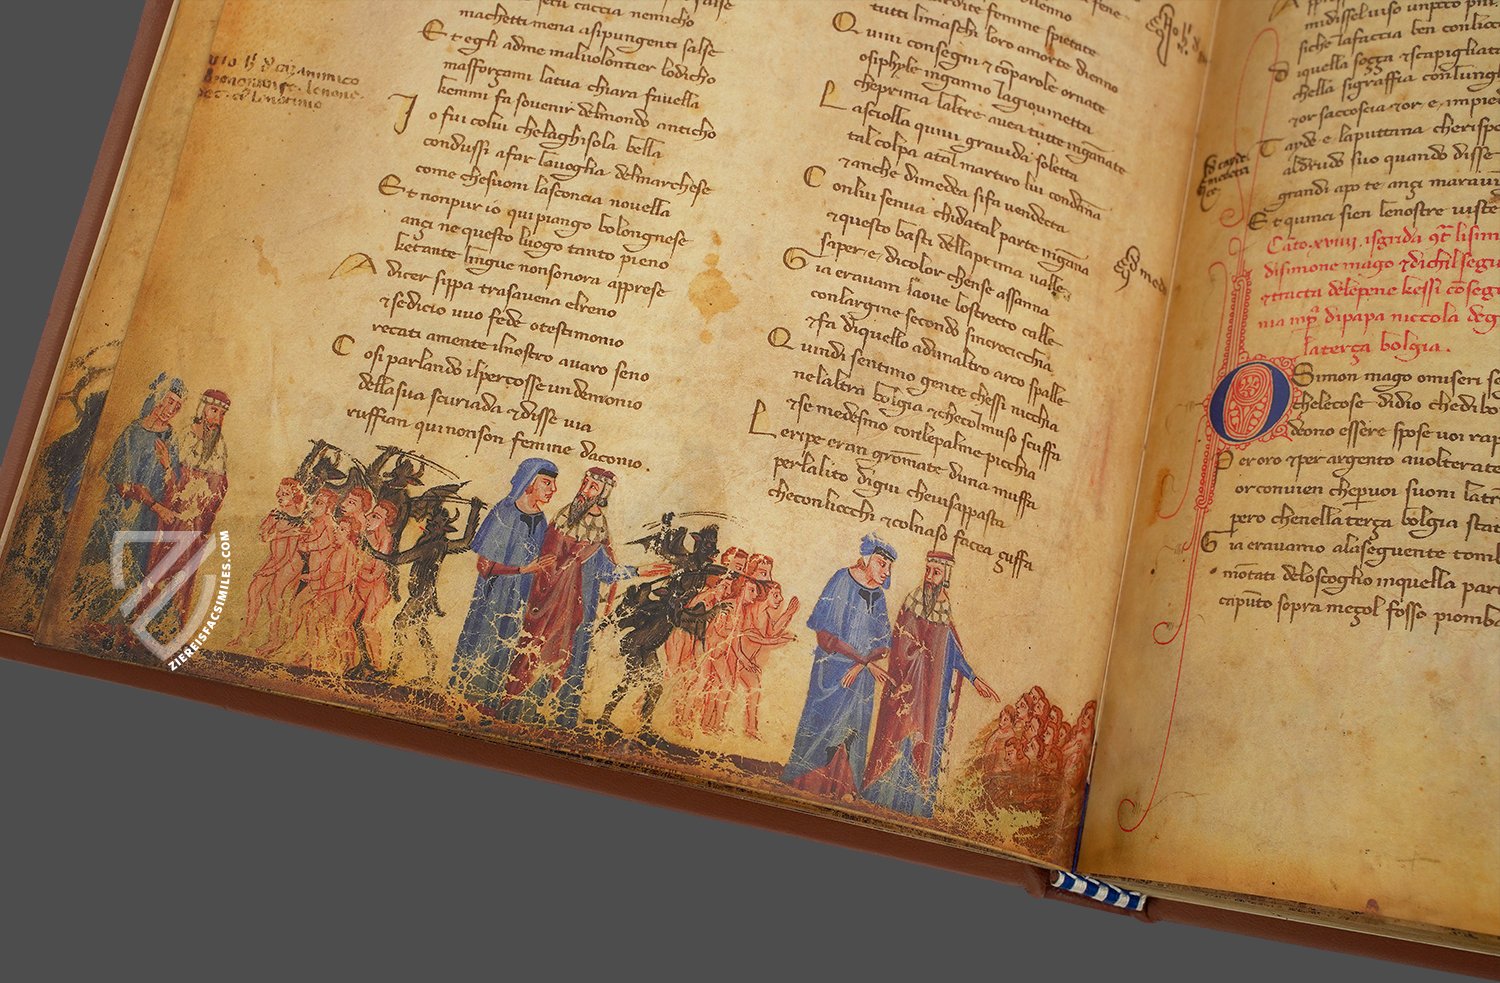 machetti mena asipungenti salse
Et egli adme maluolontier lodicho
masforçami latua chiara fauella
kemmi fa souenir delmondo anticho
Io fui colui chelaghisola bella
condussi afar lauoglia delmarchese
come chesuoni lasconcia nouella
Et nonpur io qui piango bolongnese
ançi ne questo luogo tanto pieno
ketante lingue nonsonora apprese
A dicer sippa trasauena elreno
et sedicio vuo fede otestimonio
recati amente ilnostro auaro seno
Cosi parlando ilpercosse un demonio
dellasua scuriada et disse uia
ruffian qui nonson femine daconio.
tutti limaschi loro amorte dienno
Quiui consegni et cōparole ornate
osiphyle inganno lagiouinetta
cheprima laltre auea tutte ingānate
Lasciolla quiui grauida soletta
tal colpa atal martiro lui condāna
et anche dimedea sifa uendetta
Conlui senua chidatal parte ingāna
et questo basti dellaprima ualle
saper e dicolor chense assanna
Gia erauam laoue lostrecto calle
conlargine secondo sincrocicchia
et fa diquello adunaltro arco spalle
Quindi sentimo gente chessi nicchia
nelaltra bolgia et checolmuso scuffa
et se medesmo conlepalme picchia
Leripe eran gromate duna muffa
perlalito digiu cheuisappasta
checonliocchi et colnaso facea çuffa
fiche lafaccia ben conlioc
diquella soçça et scapigliata
chella sigraffia conlungh
et or saccoscia et or e impied
Tayde e laputtana cherispo
aldrudo suo quando disse
grandi apo te ançi maraui
Et quinci sien lenostre uiste
disimone mago et dichilsegui
laterça bolgia.
O Simon mago omiseri se
chelecose didio chedibo
deono essere spose uoi rap
Per oro et per argento auolterate
orconuien cheperuoi suoni latr
pero chenellaterça bolgia stat
Gia erauamo alaseguente tomb
mōtati deloscoglio inquella par
capūto sopra meçol fosso piomba
ZIEREISFACSIMILES.COM